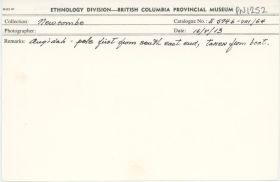 ETHNOLOGY DIVISION—BRITISH COLUMBIA PROVINCIAL MUSEUM PN1252
Collection: Newcombe Catalogue No.:
Photographer: Date:
Remarks: Angidah - pole first from south east end, taken from boat.